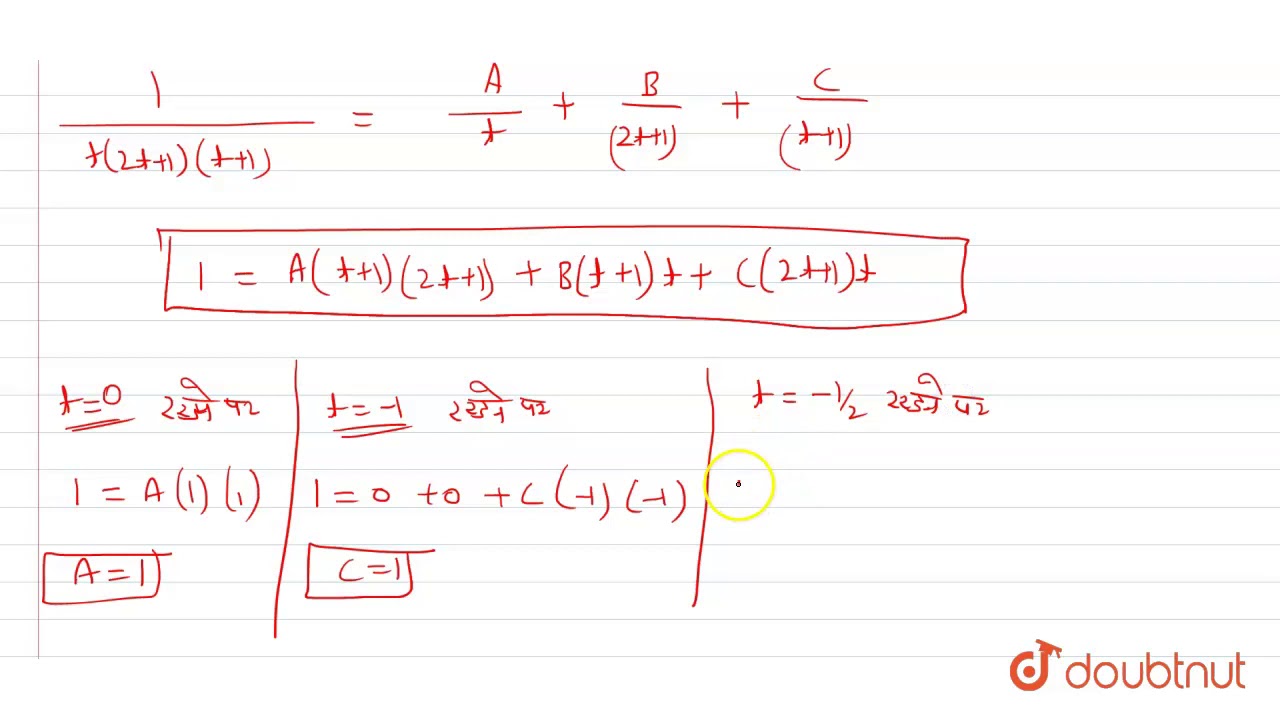 1/(t(2t+1)(t+1)) = A/t + B/(2t+1) + C/(t+1)
1 = A(t+1)(2t+1) + B(t+1)t + C(2t+1)t
t=0 रखने पर
1 = A(1)(1)
A=1
t=-1 रखने पर
1=0+0+C(-1)(-1)
C=1
t=-1/2 रखने पर
doubtnut